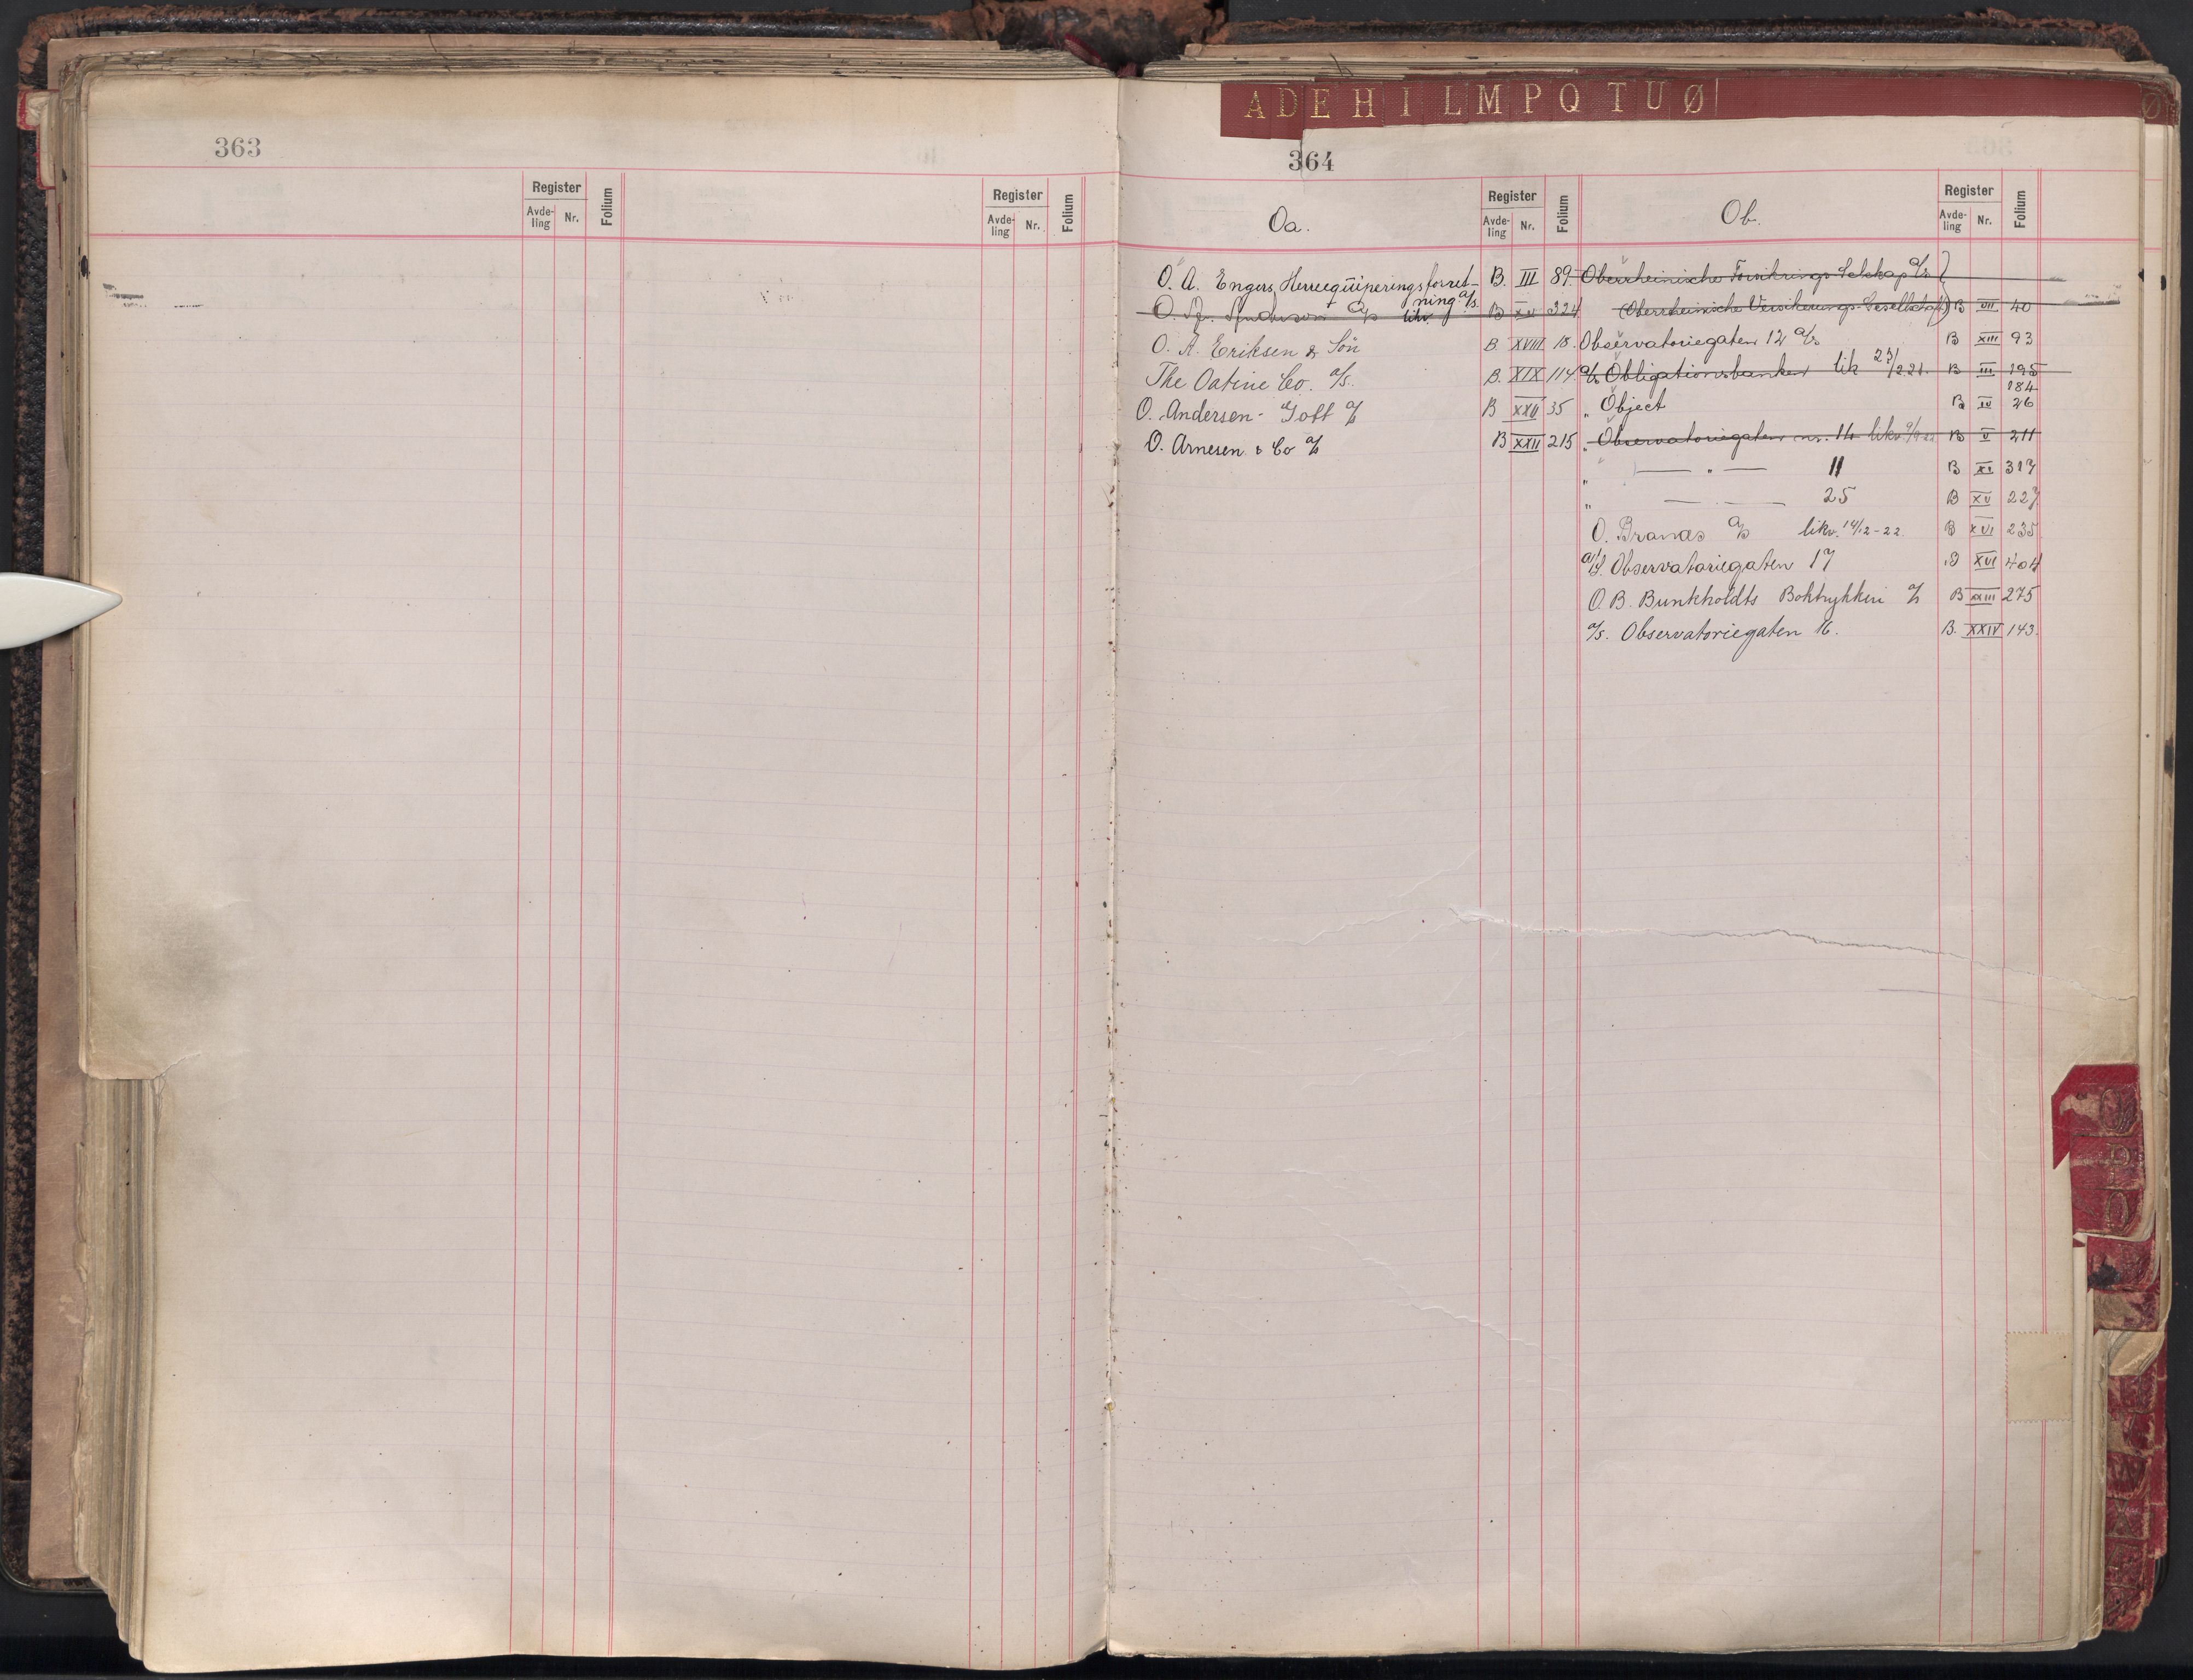 A D E H I L M P Q T U Ø
Ø
363
Register
Avde-
ling
Nr.
Folium
Register
Avde-
ling
Nr.
Folium
364
Oa.
Register
Avde-
ling
Nr.
Folium
O. A. Engers Herreequiperingsforret- B. III 89.
ning a/s.
O. a/s likv B XV 324
O. A. Eriksen & Sön B. XVIII 18.
The Oatine Co. a/s. B. XIX 114
O. Andersen - Toft a/s B XXII 35
O. Arnesen & Co a/s B XXII 215
Ob.
Register
Avde-
ling
Nr.
Folium
Oberrheinische Forsikrings-Selskap a/s
(Oberrheinische Versikerungs-Gesellschaft) B VII 40
Observatoriegaten 12 a/s B XIII 93
a/s Obligationsbanken lik 23/2 21. B III 195
184
„ Object B IV 26
„ Observatoriegaten nr. 14 likv B V 211
„ — „ — 11 B XI 317
„ — — 25 B XV 227
O. Branås a/s likv. 14/12-22. B XVI 235
a/s. Observatoriegaten 17 B XVI 404
O. B. Bunkholdts Boktrykkeri a/s B XXIII 275
a/s. Observatoriegaten 16. B. XXIV 143.